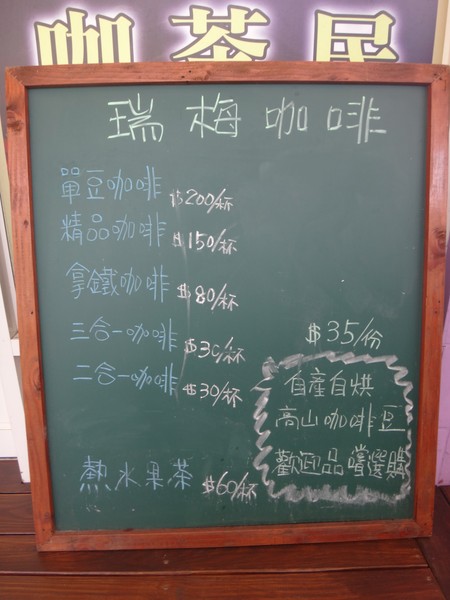 咖茶民
瑞梅咖啡
單豆咖啡 $200/杯
精品咖啡 $150/杯
拿鐵咖啡 $80/杯
三合一咖啡 $30/杯
二合一咖啡 $30/杯
熱水果茶 $60/杯
$35/份
自產自烘
高山咖啡豆
歡迎品嚐選購